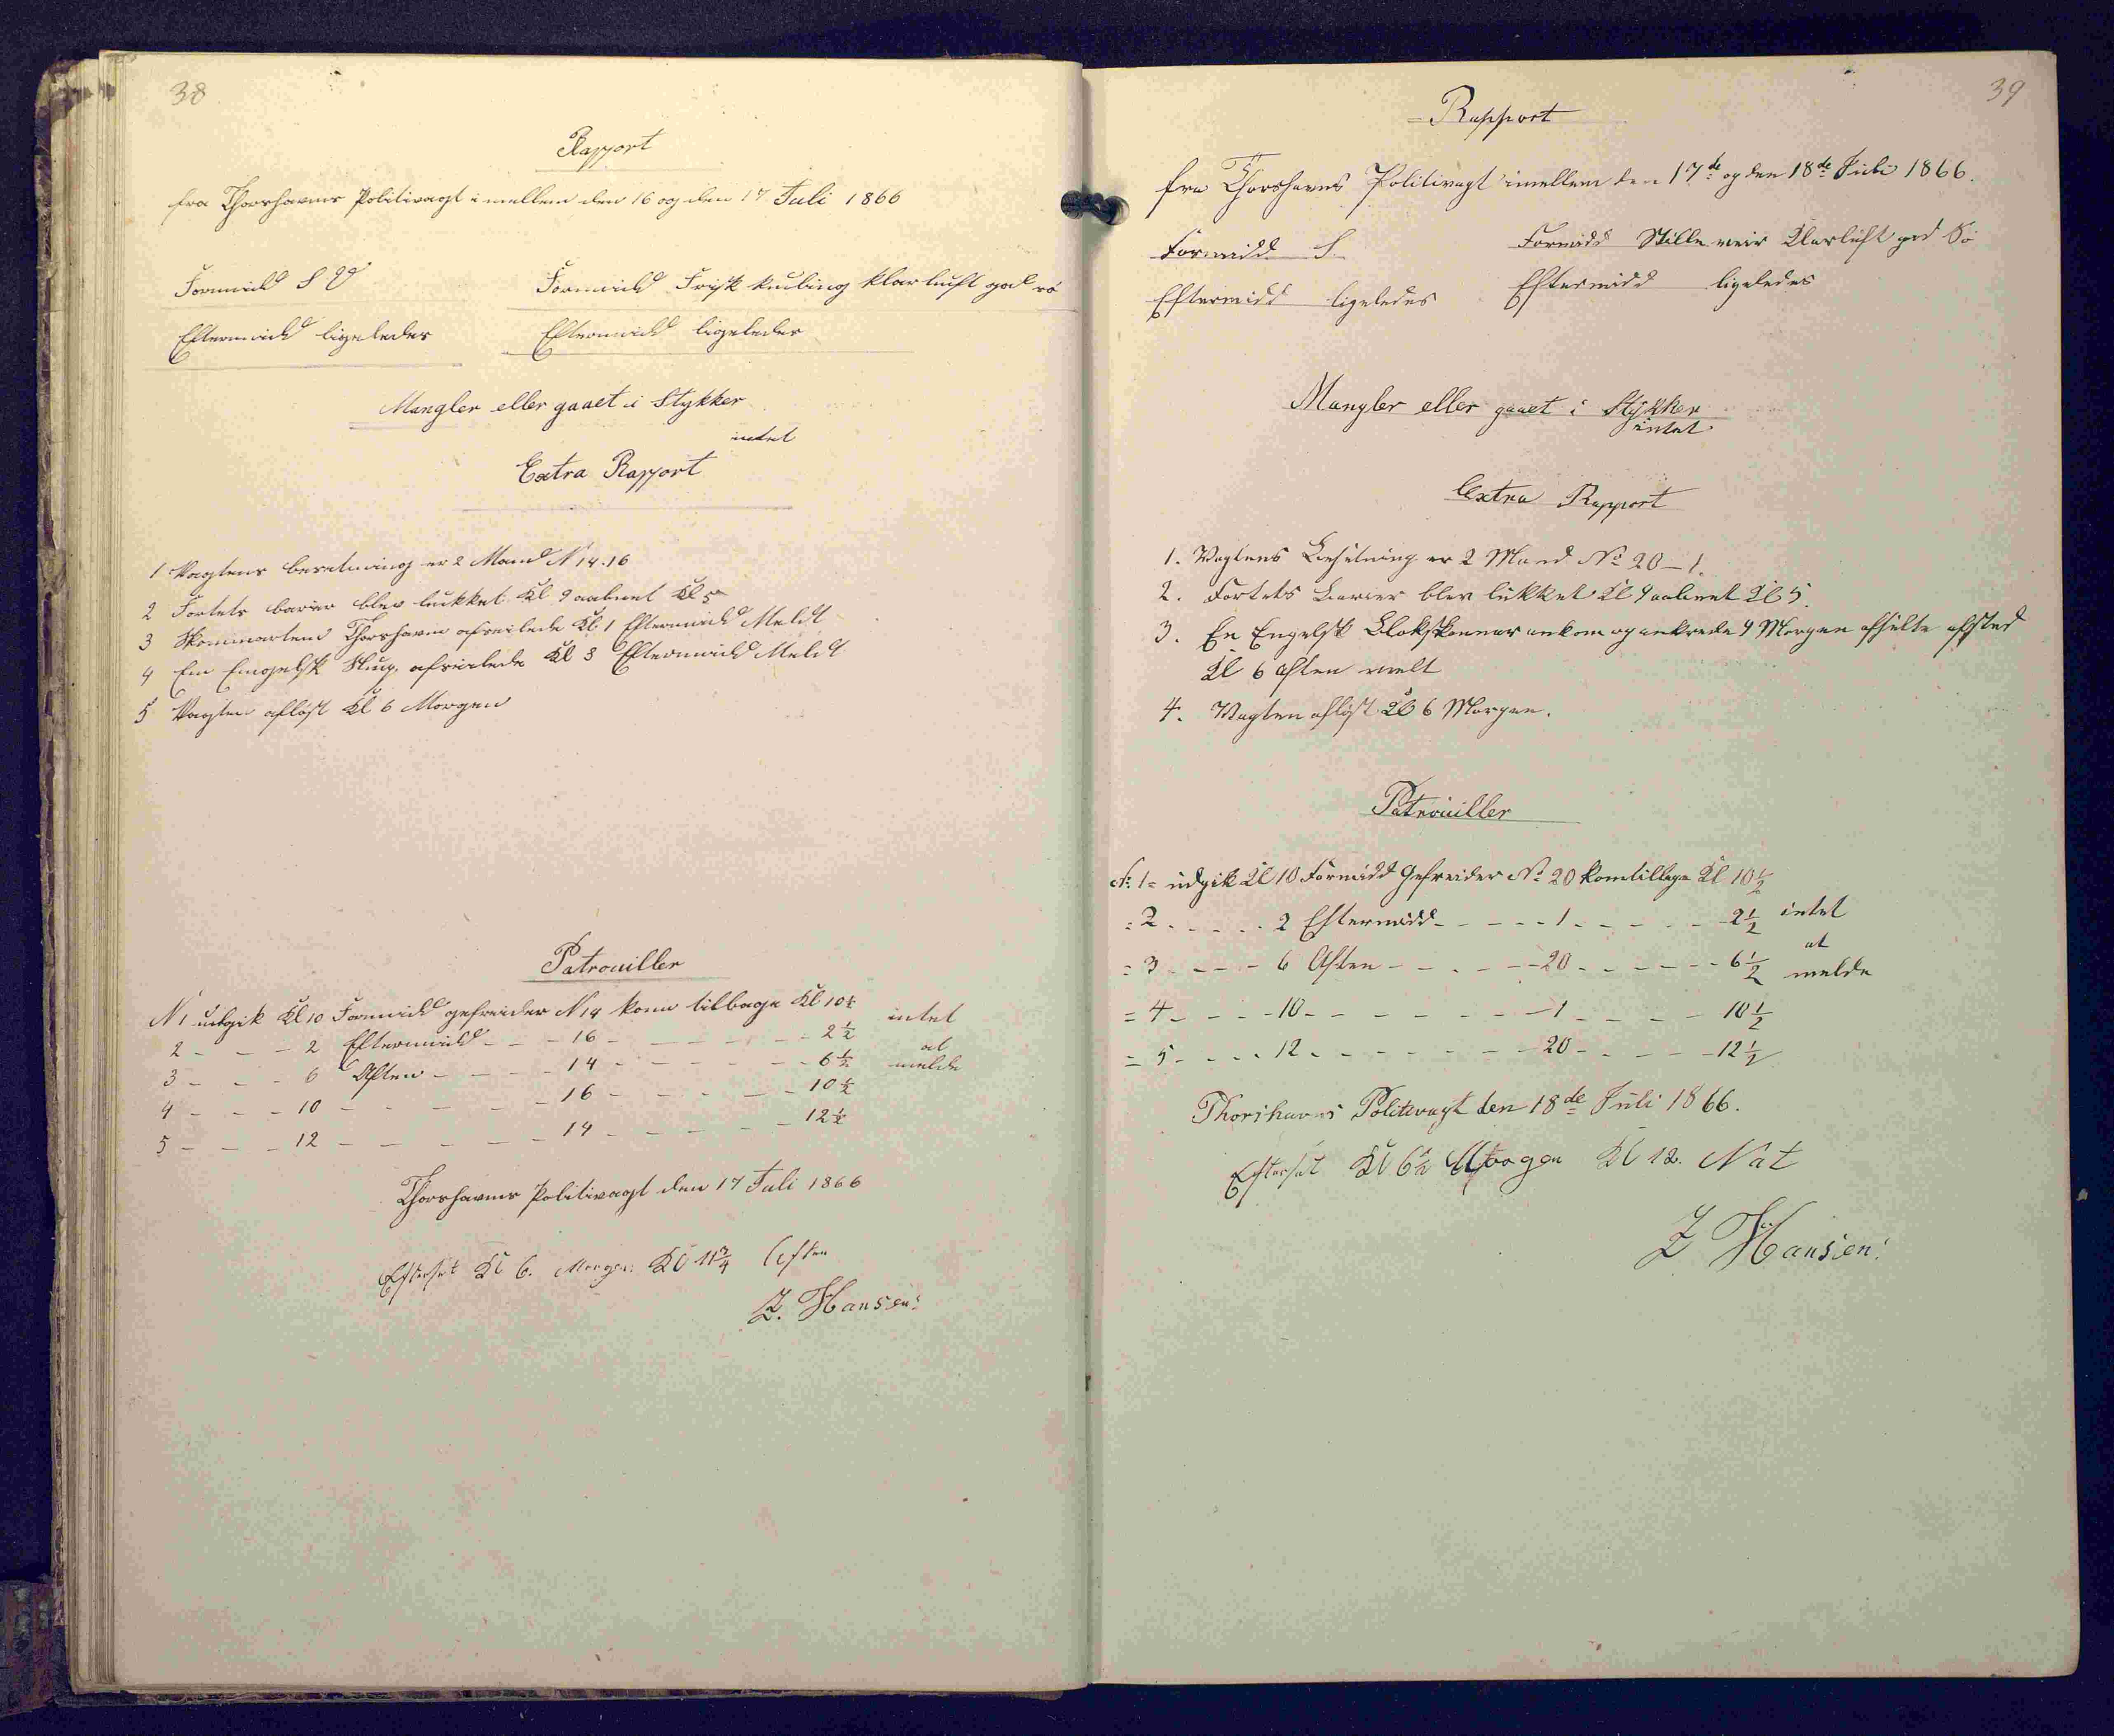 38
Rapport
fra Thorshavns Politivagt imellem den 16 og den 17 Juli 1866
Formidd S V
Formidd Frisk kuling klar luft god sø
Eftermidd ligeledes
Eftermidd ligeledes
Mangler eller gaaet i Stykker
intet
Extra Rapport
1 Vagtens besetning er 2 Mand N 14.16
2 Fortets barier blev lukket Kl 9 aabnet Kl 5
3 Skonnerten Thorshavn afseilede Kl 1 Eftermidd Meldt
4 En Engelsk Slup afseilede Kl 3 Eftermidd Meldt
5 Vagten afløst Kl 6 Morgen
Patrouiller
N 1 udgik Kl 10 Formidd gefreider N 14 kom tilbage Kl 10½
2 - - - 2 Eftermidd - - - 16 - - - - - 2½ intet
3 - - - 6 Aften - - - - 14 - - - - - 6½ at melde
4 - - - 10 - - - - - - 16 - - - - - 10½
5 - - - 12 - - - - - - 14 - - - - - 12½
Thorshavns Politivagt den 17 Juli 1866
Efterset Kl 6. Morgen Kl 11¾ Aften
Z. Hansen
39
Rapport
fra Thorshavns Politivagt imellem den 17de og den 18de Juli 1866.
Formidd S.
Formidd Stille veir Klarluft god Sö
Eftermidd ligeledes
Eftermidd ligeledes
Mangler eller gaaet i Stykker
intet.
Extra Rapport
1. Vagtens Besetning er 2 Mand No 20 - 1.
2. Fortets Barier blev lukket Kl 9 aabnet Kl 5.
3. En Engelsk Slokskonner ankom og ankrede 9 Morgen afseilte afsted
Kl 6 Aften melt
4. Vagten afløst Kl 6 Morgen.
Patrouiller
No 1 = udgik Kl 10 Formidd Gefreider No 20 kom tilbage Kl 10½
= 2 - - - - - 2 Eftermidd - - - - - 1 - - - - - 2½ intet
at
= 3 - - - - 6 Aften - - - - - 20 - - - - - 6½ melde
= 4 - - - - 10 - - - - - - - 1 - - - - - 10½
= 5 - - - - 12 - - - - - - - 20 - - - - - 12½
Thorshavns Politivagt den 18de Juli 1866.
Efterset Kl 6½ Morgen Kl 12. Nat
Z Hansen